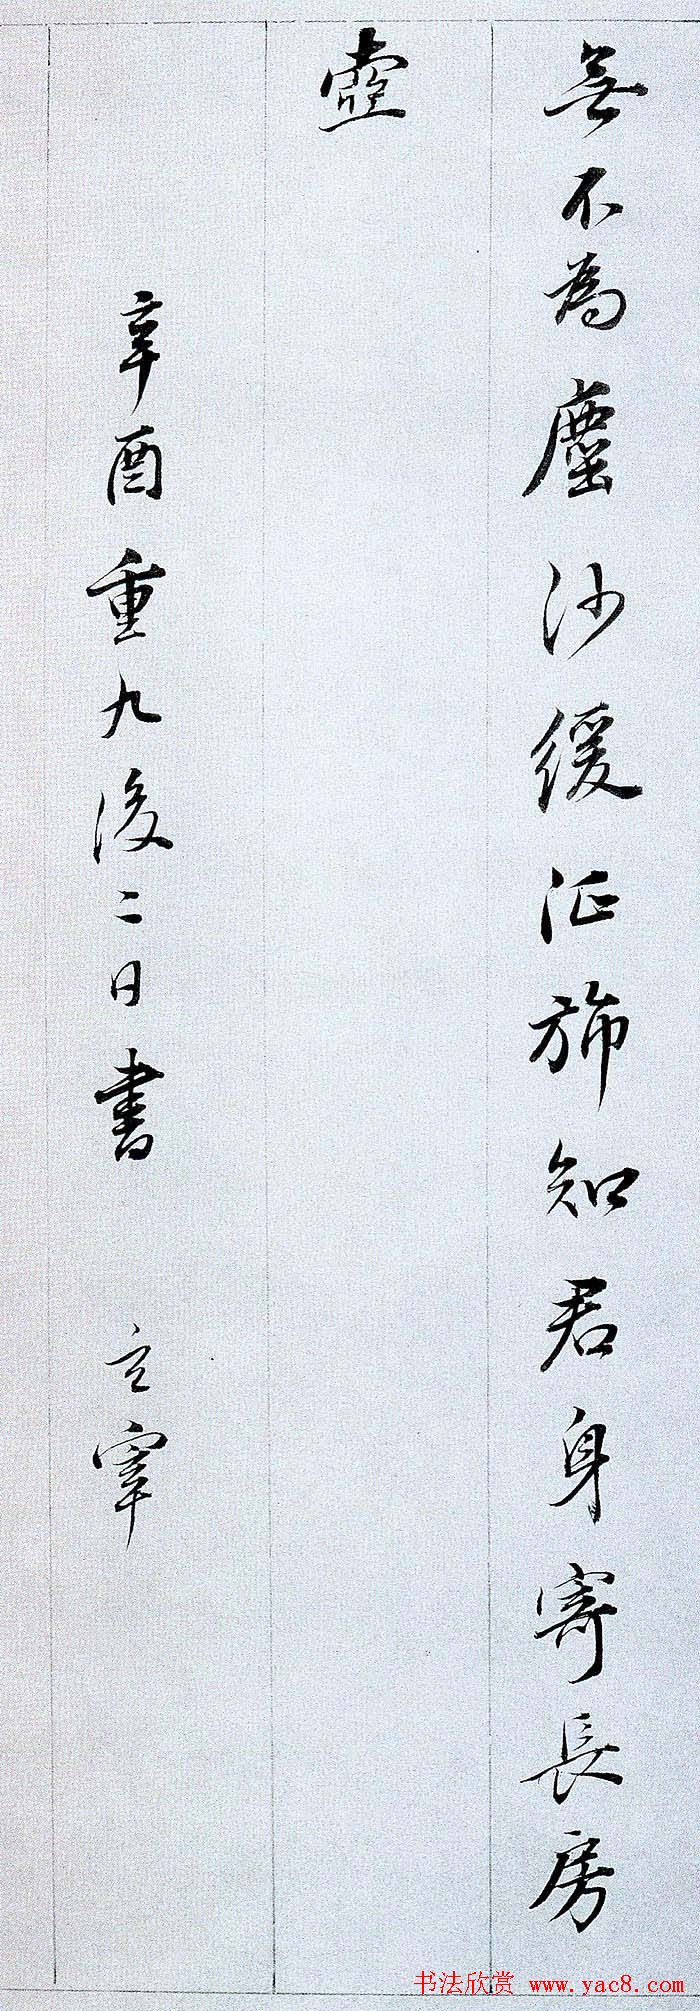 無不為塵沙緩征旆知君身寄長房
壺
辛酉重九後二日書 立宰
书法欣赏 www.yac8.com